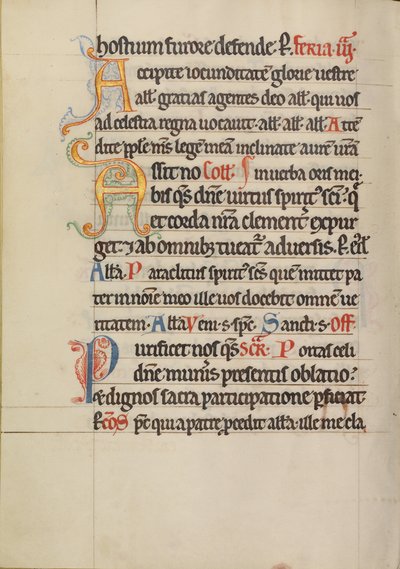 hostium furore defende. R. feria .iii.
Accipite iocunditatē glorie uestre
all'. gratias agentes deo all'. qui uos
ad celestia regna uocauit. all'. all'. all'. Atten
dite pp̄le m̄s legē meā inclinate aurē urā
Assit no Coll'. In uerba oris mei.
bis qs dn̄e uirtus spiritꝰ sc̄i. q̄
et corda nr̄a clement̄ expur
get ⁊ ab omnibꝫ tueat̄ aduersis. R.
All'a. Paraclitus spiritꝰ sc̄s quē mittet pa
ter in nōīe meo ille uos docebit omnē ue
ritatem. All'a Veni. s. spc̄. Sancti. s. Off.
Purificet nos qs Scr̄. Portas celi
dn̄e munis presentis oblatio?
et dignos sacra participatione p̄ficiat.
Cōs Spc̄ qui a patre p̄cedit all'a. ille me cla